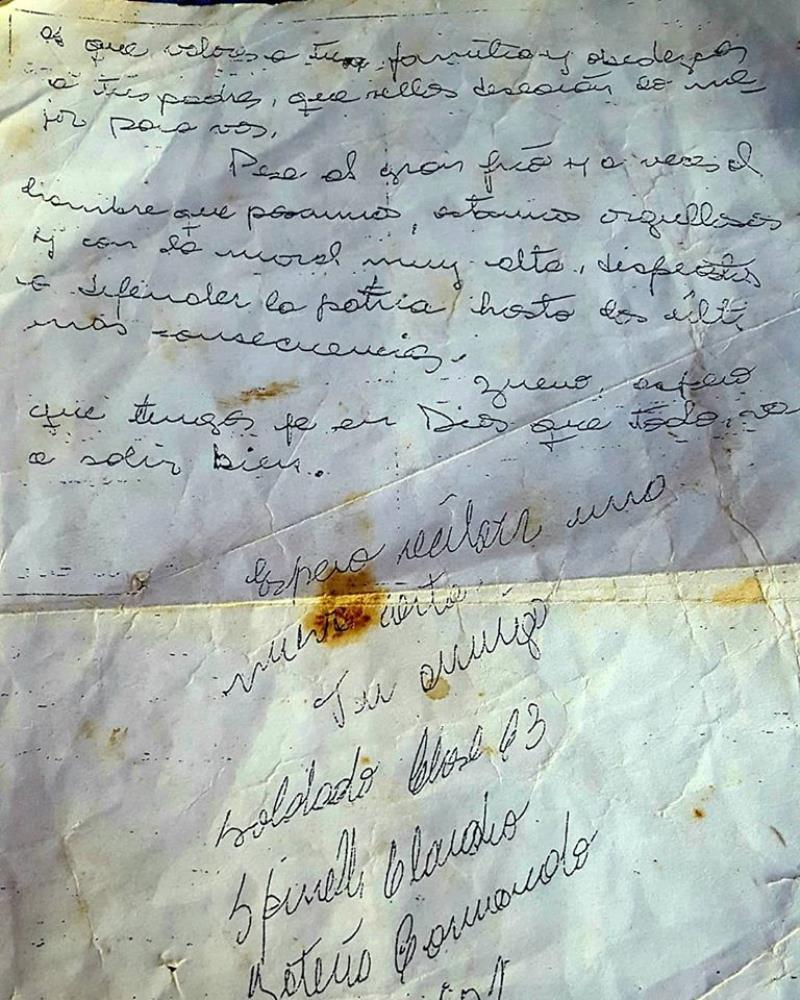 es que valores a tu familia y obedezcas
a tus padres, que ellos desearán lo me
jor para vos.
Pese al gran frío y a veces el
hambre que pasamos, estamos orgullosos
y con la moral muy alta, dispuestos
a defender la patria hasta las últi
mas consecuencias.
Bueno, espero
que tengas fe en Dios que todo va
a salir bien.
Espero recibir una
nueva carta
Tu amigo
Soldado Clase 63
Spinelli Claudio
Batería Comando